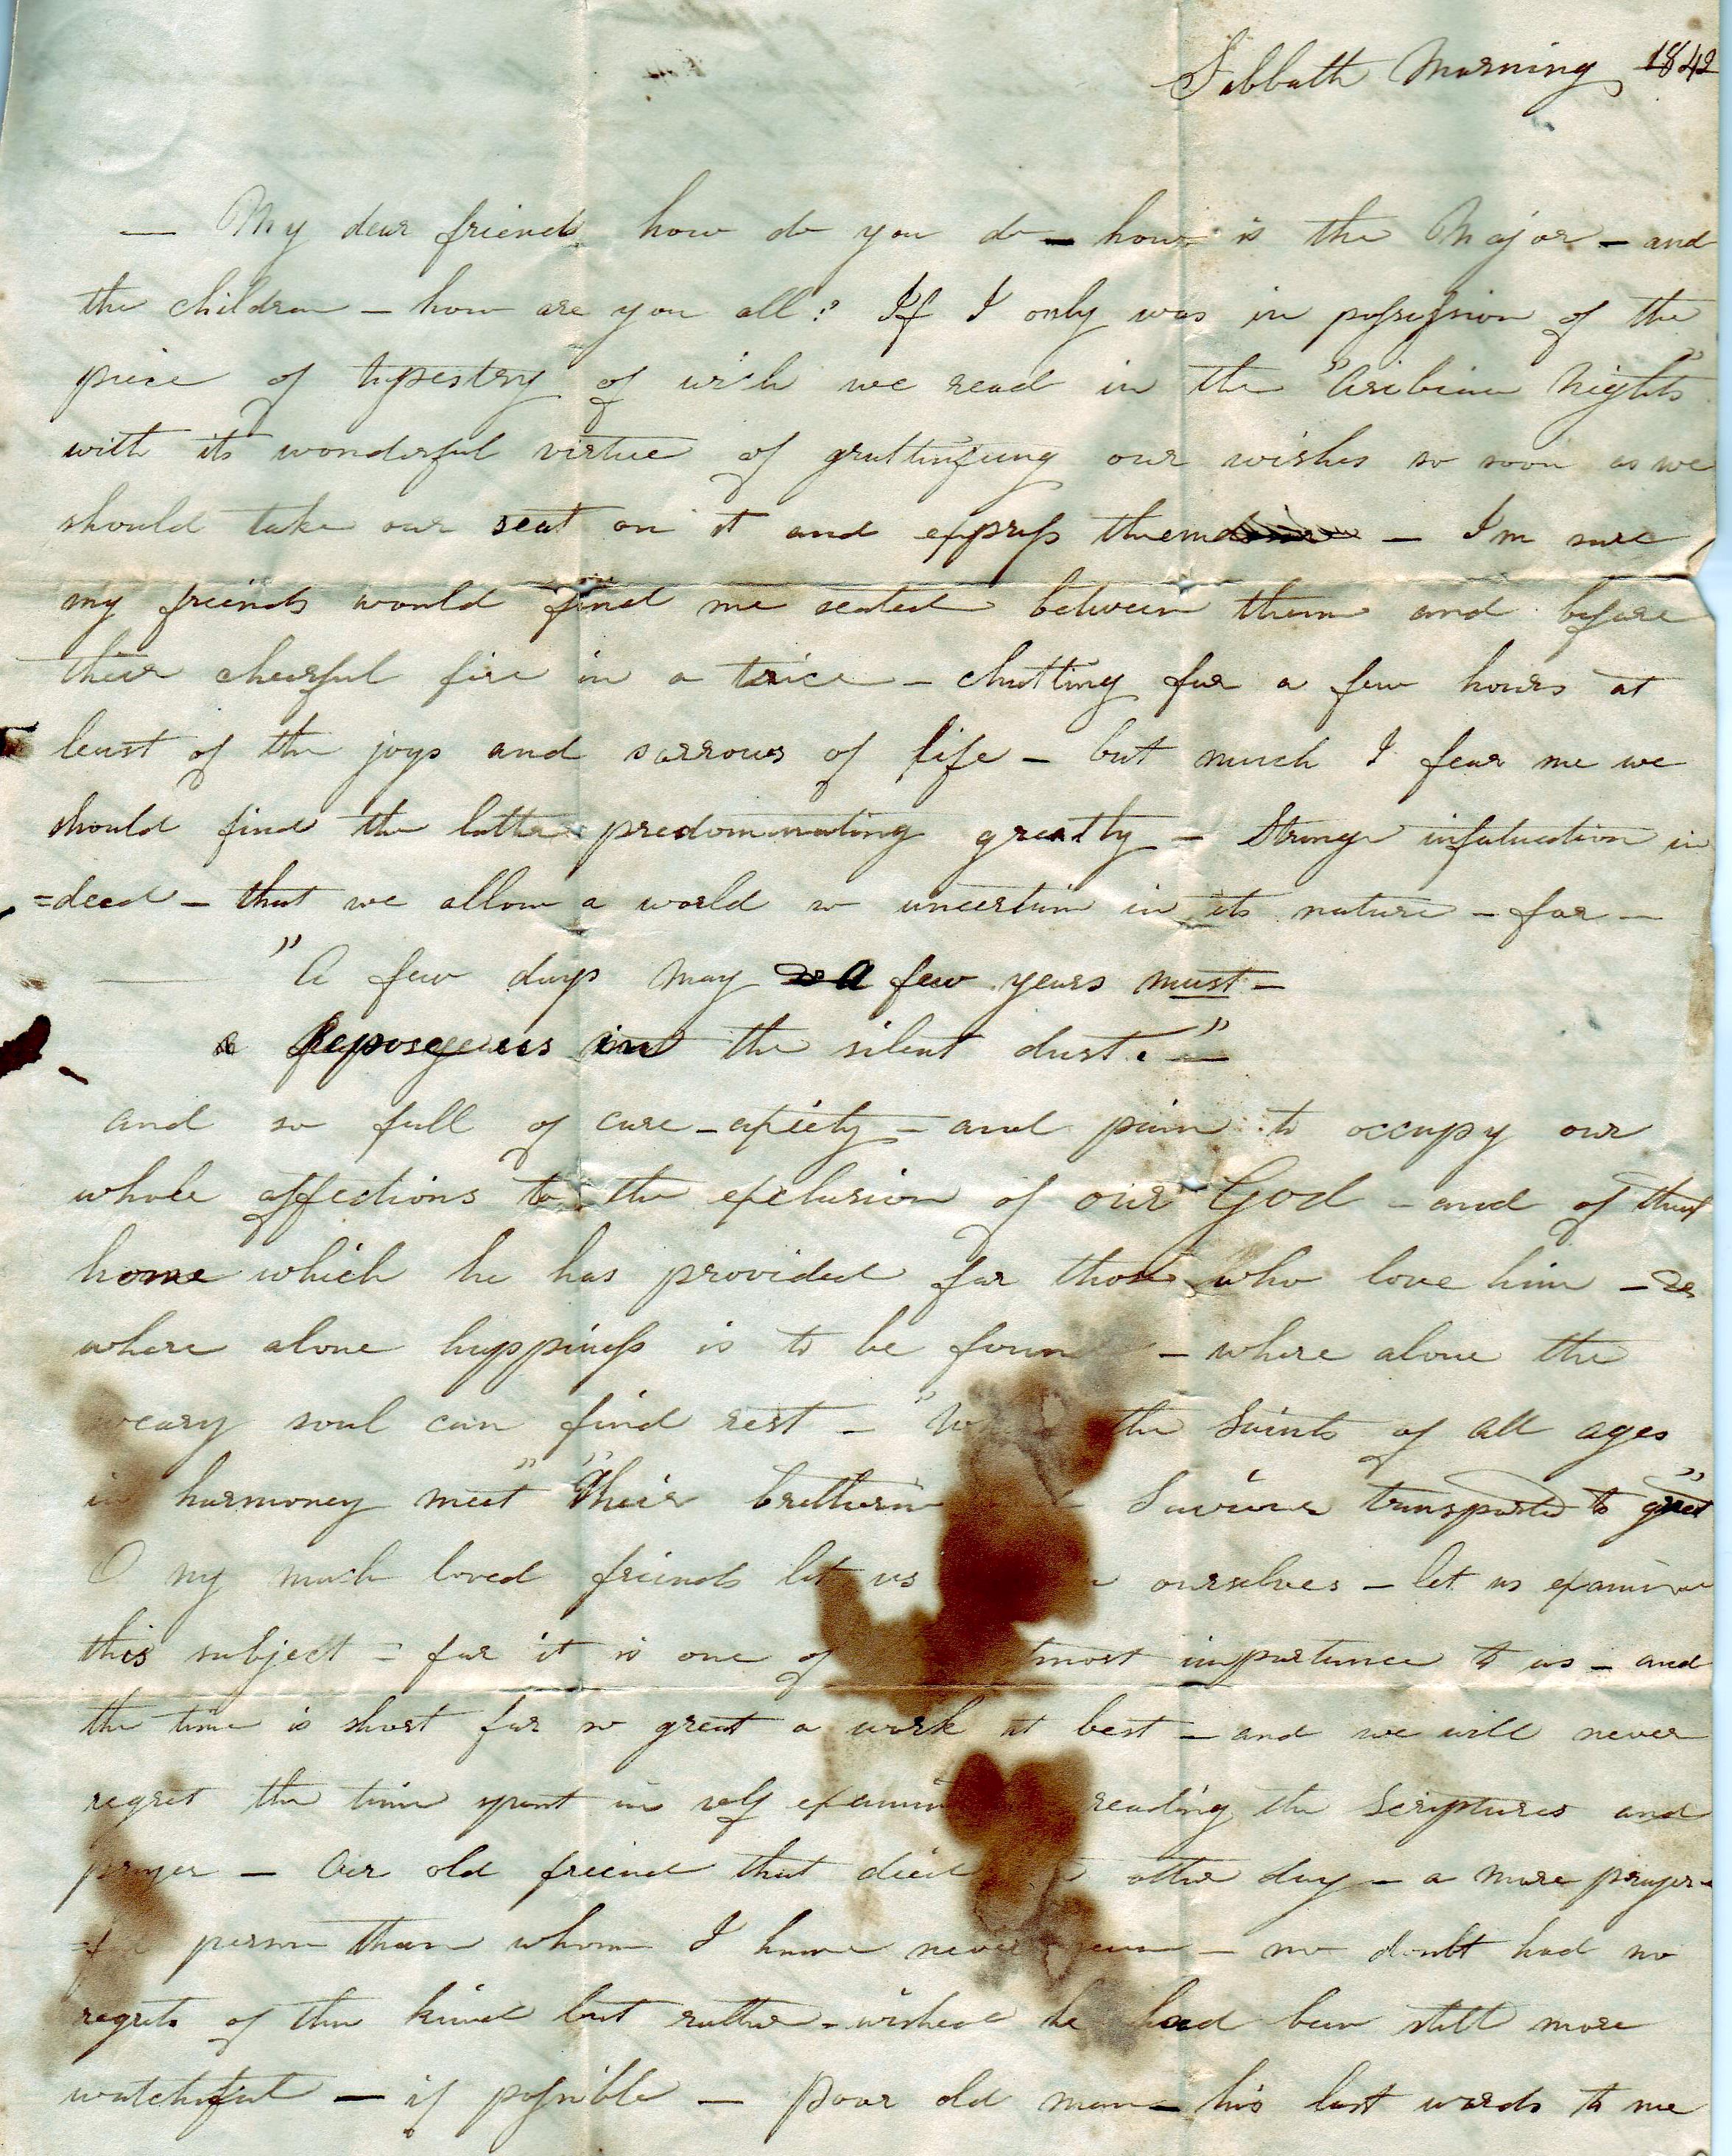 Sabbath Morning 1842
— My dear friends how do you do — how is the Major — and
the children — how are you all? If I only was in possession of the
piece of typestry of wich we read in the "Aribian Nights"
with its wonderful virtue of our wishes so soon as we
should take our seat on it and express them — Im sure
my friends would find me seated between them and before
their cheerful fire in a trice — chatting for a few hours at
least of the joys and sorrows of life — but much I fear me we
should find the latter predominating greatly — Strange infatuation in
=deed — that we allow a world so uncertain in its nature — for —
— "A few days may a few years must —
Repose us in the silent dust." —
and so full of care — axiety — and pain to occupy our
whole affections to the exclusion of our God — and of that
home which he has provided for those who love him —
where alone happiness is to be foun — where alone the
weary soul can find rest — " the Saints of all ages
in harmoney meet" "Their bretheren Saviour transported to greet"
O my much loved friends let us ourselves — let us examine
this subject = for it is one of tmost importance to us — and
the time is short for so great a work at best — and we will never
regret the time spent in self examin reading the Scriptures and
prayer — Our old friend that died other day — a more prayer=
person than whom I have never — no doubt had no
regrets of this kind but rather — wished he had been still more
watchful — if possible — Poor old man — his last words to me